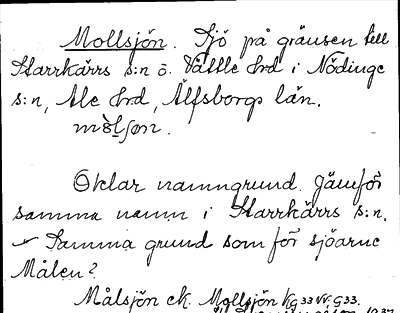 Mollsjön. Sjö på gränsen till
Starrkärrs s:n o. Vättle hrd i Nödinge
s:n, Ale hrd, Älfsborgs län.
Oklar namngrund. Jämför
samma namn i Starrkärrs s:n.
Samma grund som för sjöarne
Målen?
Målsjön ek. Mollsjön KG 33 VV. G 33.